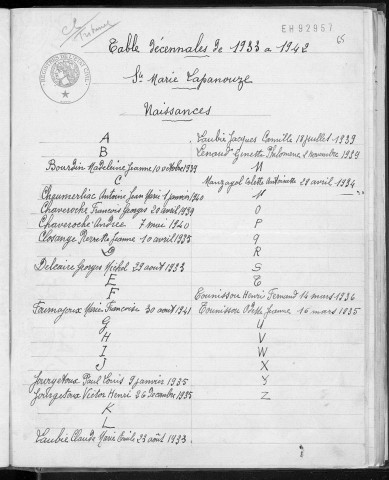 EH92957
Table décennales de 1933 a 1942
Ste Marie Lapanouze
Naissances
A
B
Bourdin Madeleine Jeanne 10 octobre 1939
C
Cheumerliac Antoine Jean Marie 1 janvier 1940
Chaveroche François Georges 20 avril 1939
Chaveroche Andrée 7 mai 1940
Closange Pierrette Jeanne 10 avril 1935
D
Delcaire Georges Michel 29 août 1933
E
F
Fournajoux Marie Françoise 30 août 1941
G
H
I
J
Jourgetoux Paul Louis 9 janvier 1935
Jourgetoux Victor Henri 26 Decembre 1935
K
L
Laubie Claude Marie Emile 23 août 1933
Laubie Jacques Camille 18 juillet 1939
Lenaud Ginette Philomene 2 novembre 1934
M
Manzagol Colette Antoinette 28 avril 1934
N
O
P
Q
R
S
T
Tounissou Henri Fernand 14 mars 1936
Tounissou Odette Jeanne 16 mars 1935
U
V
W
X
Y
Z